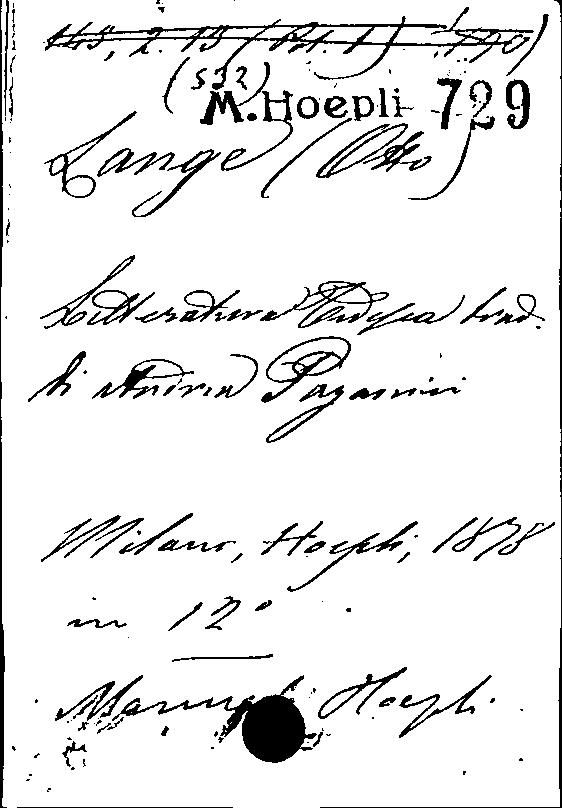 145, 2. 13 (Pt. 1)
(532)
M. Hoepli 729
Lange (Otto)
Letteratura Tedesca trad.
di Andrea Paganini
Milano, Hoepli, 1878
in 12°
Manuali Hoepli